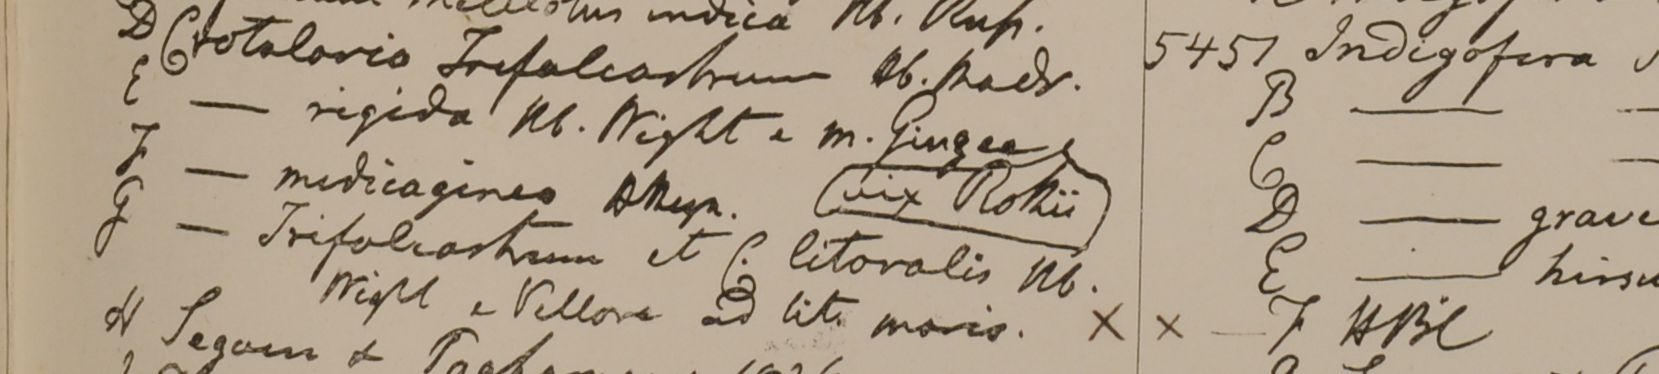 Melilotus indica Hb. Rup.
D Crotalaria Trifoliastrum Hb. Madr.
E — rigida Hb. Wight e m. Gingee
F — medicaginea HRup. (vix Rothii)
G — Trifoliastrum et C. litoralis Hb.
Wight e Vellore ad lit. maris. ×
H Segain &
5451 Indigofera
B —— —
C —— —
D —— grave
E —— hirsu
× — F HBC